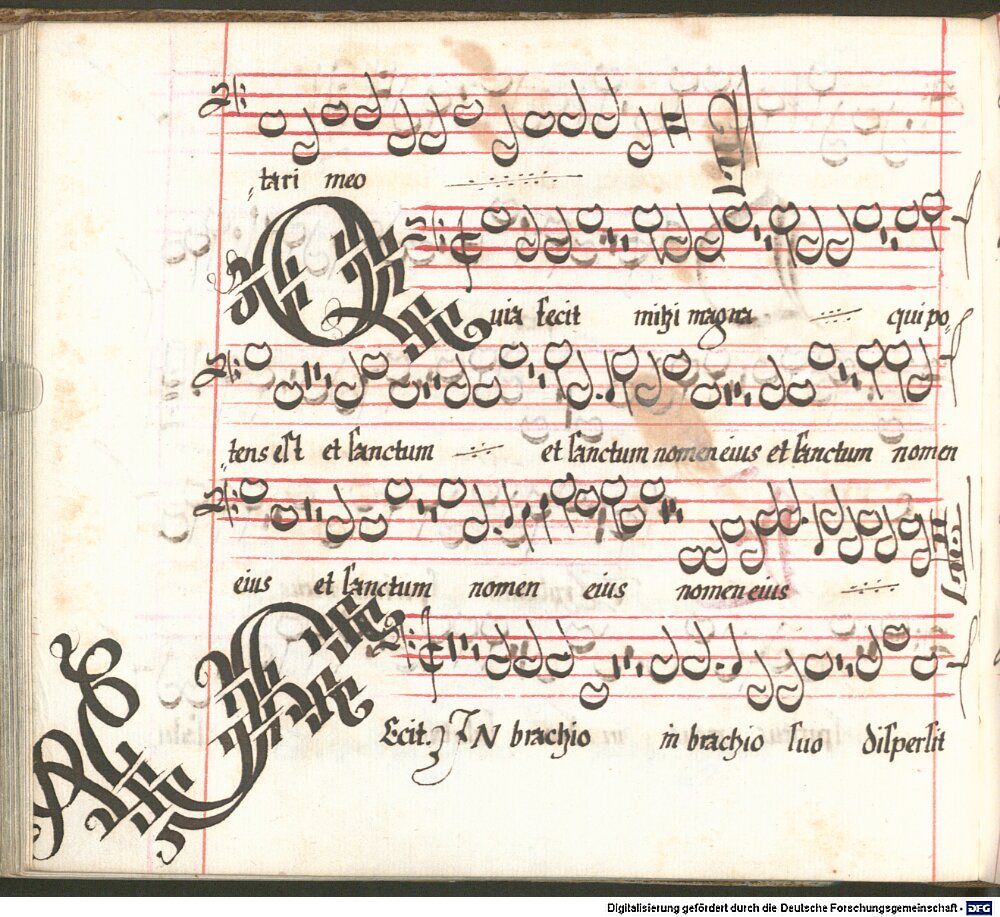 tari meo
Quia fecit mihi magna qui po-
tens est et sanctum et sanctum nomen eius et sanctum nomen
eius et sanctum nomen eius nomen eius
Fecit. IN brachio in brachio suo dispersit
Digitalisierung gefördert durch die Deutsche Forschungsgemeinschaft - DFG